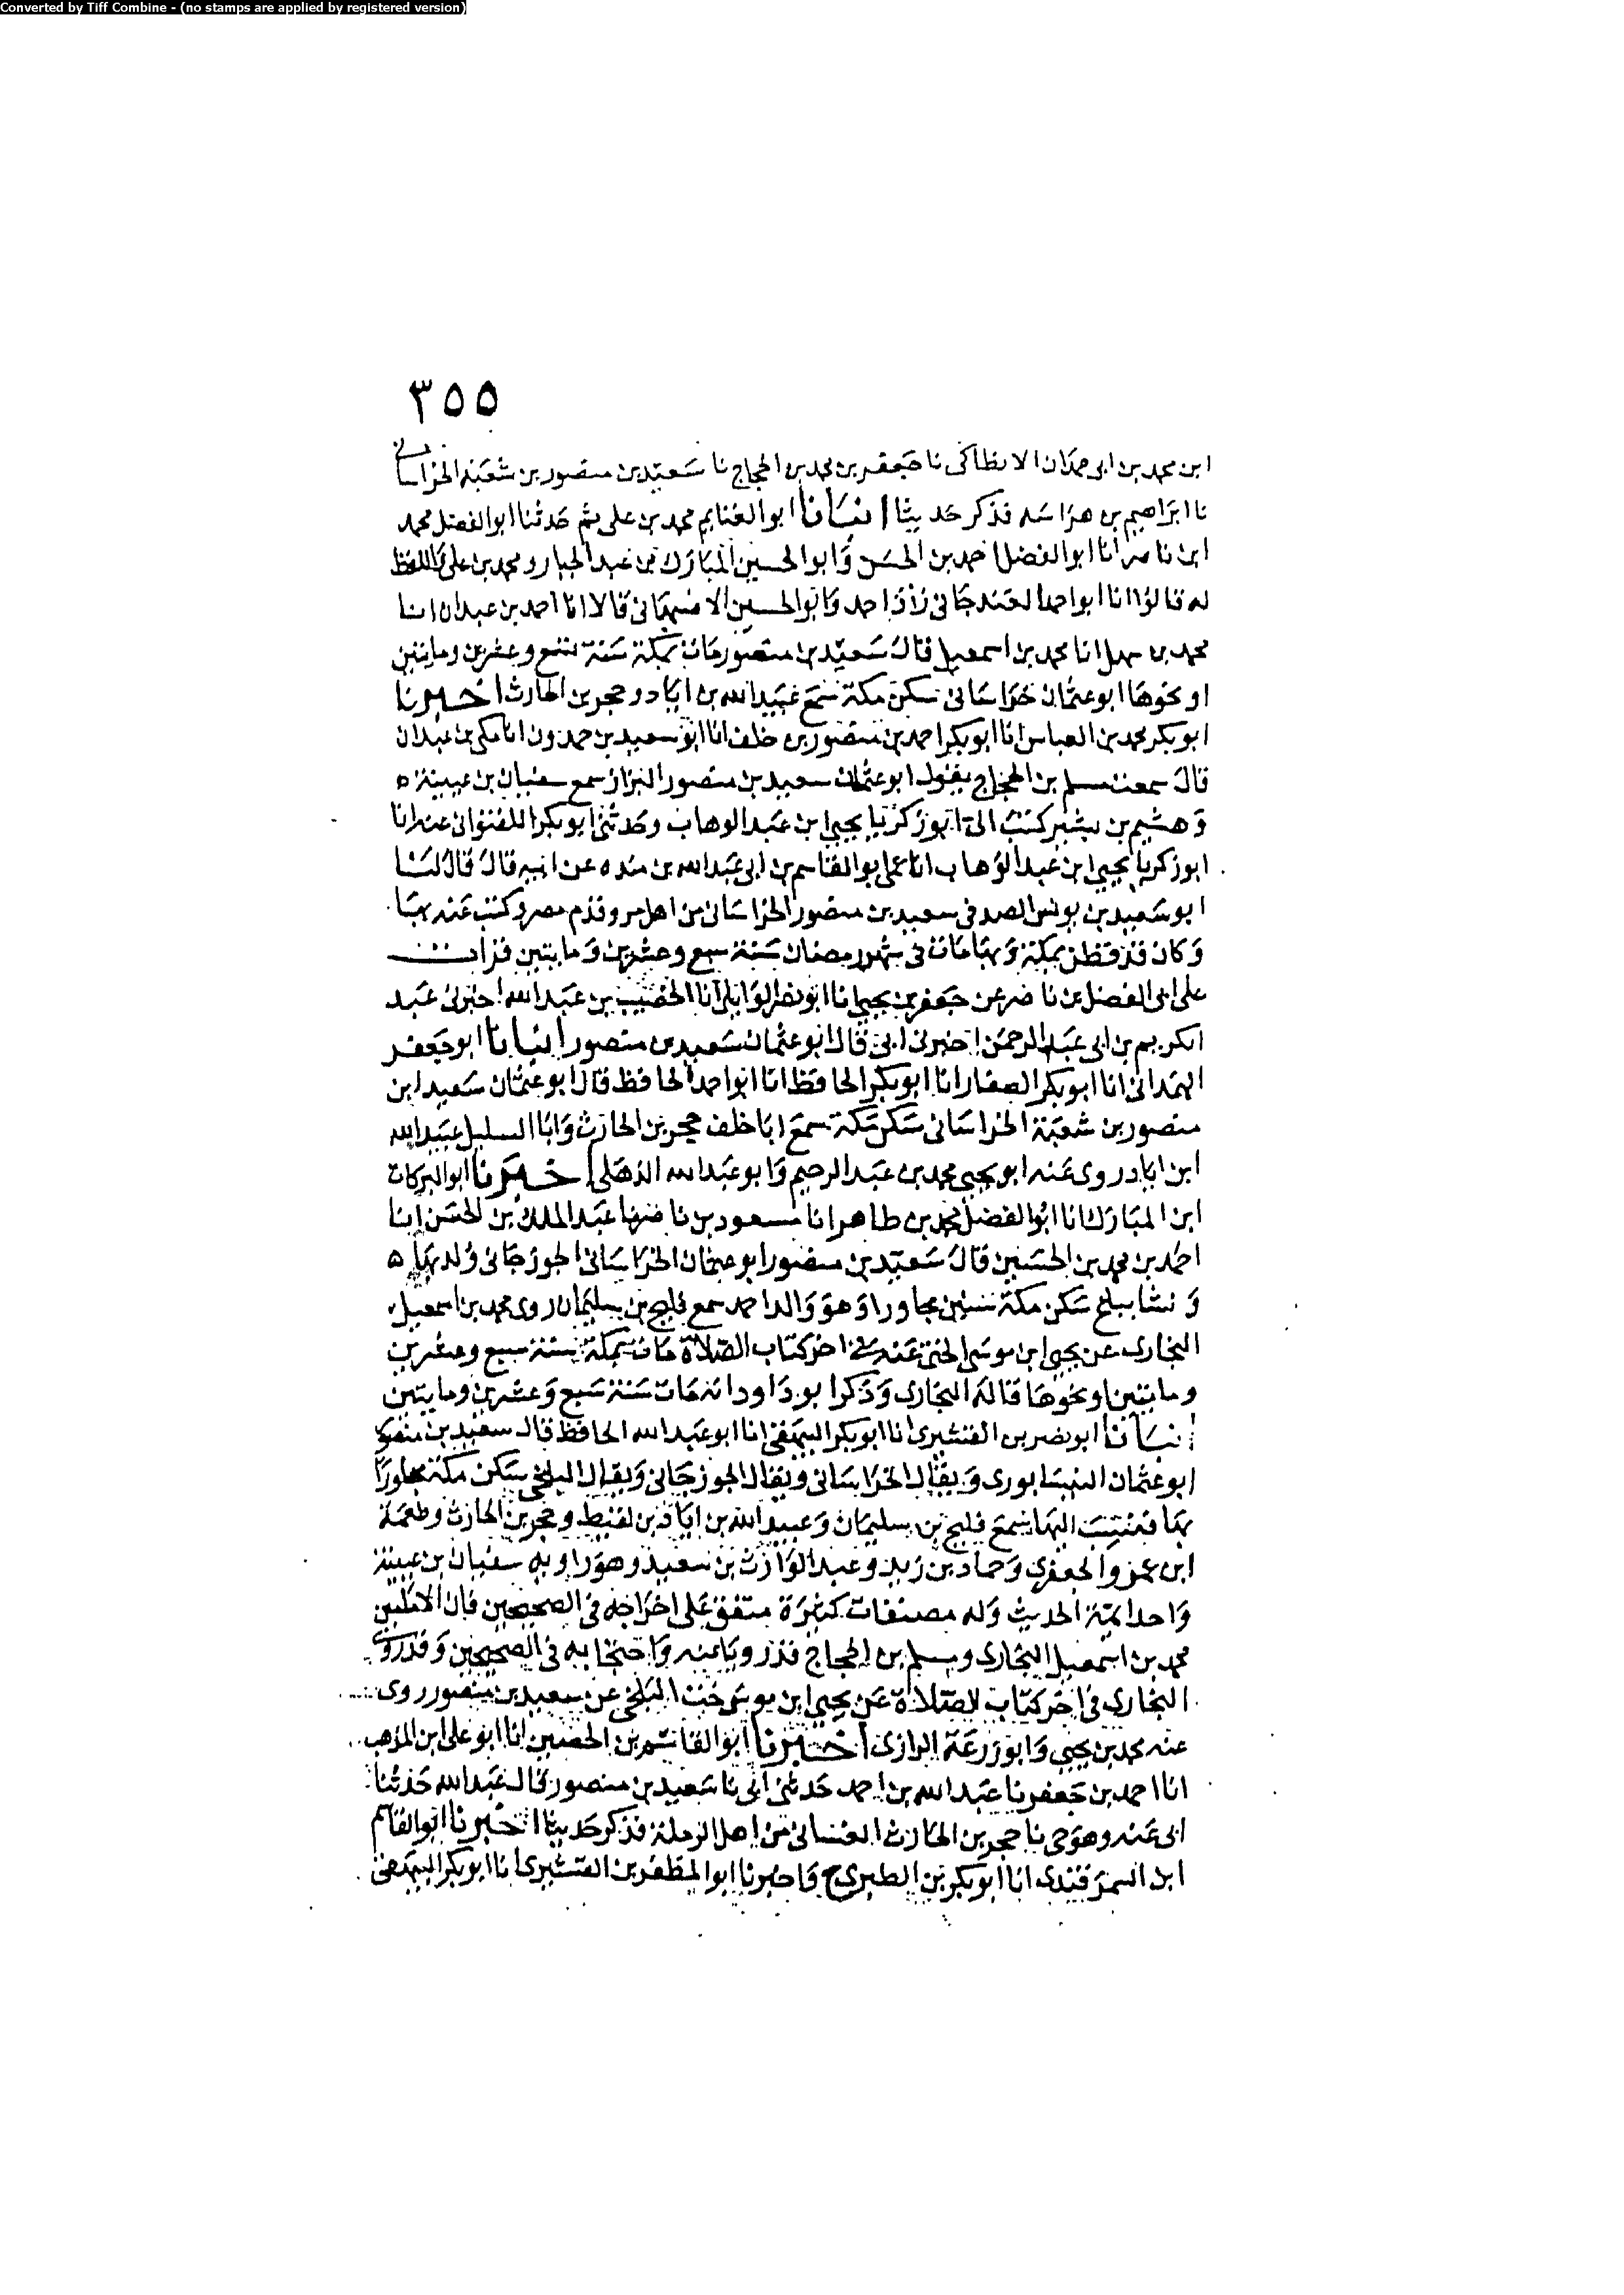 Converted by Tiff Combine - (no stamps are applied by registered version)
٣٥٥
ابن محمد بن ابى حمدان الانطاكى نا جعفر بن محمد بن الحجاج نا سعيد بن منصور بن شعبة الخراسانى
نا ابراهيم بن هراسه فذكر حديثا انبانا ابوالغنايم محمد بن على ثم حدثنا ابوالفضل محمد
ابن ناصر انا ابوالفضل احمد بن الحسن وابوالحسين المبارك بن عبدالجبار ومحمد بن على واللفظ
له قالوا انا ابواحمد الغندجانى زاد احمد وابوالحسين الاصبهانى قالا انا احمد بن عبدان انا
محمد بن سهل انا محمد بن اسمعيل قال سعيد بن منصور مات بمكة سنة تسع وعشرين ومايتين
او نحوها ابوعثمان خراسانى سكن مكة سمع عبيدالله بن اياد وحجر بن الحارث اخبرنا
ابوبكر محمد بن العباس انا ابوبكر احمد بن منصور بن خلف انا ابوسعيد بن حمدون انا مكى بن عبدان
قال سمعت مسلم بن الحجاج يقول ابوعثمان سعيد بن منصور البزاز سمع سفيان بن عيينة ه
وهشيم بن بشير كتب الى ابوزكريا يحيى ابن عبدالوهاب وحدثنى ابوبكر اللفتوانى عنه انا
ابوزكريا يحيى ابن عبدالوهاب انا عمى ابوالقاسم بن ابى عبدالله بن منده عن ابيه قال قال لنا
ابوسعيد بن يونس الصدفى سعيد بن منصور الخراسانى من اهل مرو قدم مصر وكتب عنه بها
وكان قد قطن بمكة وبها مات فى شهر رمضان سنة سبع وعشرين ومايتين قرات
على ابى الفضل بن ناصر عن جعفر بن يحيى انا ابونصر الوايلى انا الخصيب بن عبدالله اخبرنى عبد
الكريم بن ابى عبدالرحمن اخبرنى ابى قال ابوعثمان سعيد بن منصور انبانا ابوجعفر
الهمدانى انا ابوبكر الصفار انا ابوبكر الحافظ انا ابواحمد الحافظ قال ابوعثمان سعيد ابن
منصور بن شعبة الخراسانى سكن مكة سمع ابا خلف حجر بن الحارث وابا السليل عبيدالله
ابن اياد روى عنه ابويحيى محمد بن عبدالرحيم وابوعبدالله الذهلى اخبرنا ابوالبركات
ابن المبارك انا ابوالفضل محمد بن طاهر انا مسعود بن ناصر انا عبدالملك بن الحسن انا
احمد بن محمد بن الحسين قال سعيد بن منصور ابوعثمان الخراسانى الجوزجانى ولد بها ه
ونشا ببلخ سكن مكة سنين مجاورا وهو والد احمد سمع فليح بن سليمان روى محمد بن اسمعيل
البخارى عن يحيى ابن موسى الختى عنه فى اخر كتاب الصلاة مات بمكة سنة سبع وعشرين
ومايتين او نحوها قاله البخارى وذكر ابوداود انه مات سنة سبع وعشرين ومايتين
انبانا ابونصر بن القشيرى انا ابوبكر البيهقى انا ابوعبدالله الحافظ قال سعيد بن منصور
ابوعثمان النيسابورى ويقال الخراسانى ويقال الجوزجانى ويقال البلخى سكن مكة مجاورا
بها فنسب اليها سمع فليح بن سليمان وعبيدالله بن اياد بن لقيط وحجر بن الحارث وطعمة
ابن عمرو الجعفرى وحماد بن زيد وعبدالوارث بن سعيد وهو راويه سفيان بن عيينة
واحد ايمة الحديث وله مصنفات كثيرة متفق على اخراجه فى الصحيحين فان الامامين
محمد بن اسمعيل البخارى ومسلم بن الحجاج قد رويا عنه واحتجا به فى الصحيحين وقد روى
البخارى فى اخر كتاب الصلاة عن يحيى ابن موسى خت البلخى عن سعيد بن منصور روى
عنه محمد بن يحيى وابوزرعة الرازى اخبرنا ابوالقاسم بن الحصين انا ابوعلى ابن المذهب
انا احمد بن جعفر نا عبدالله بن احمد حدثنى ابى نا سعيد بن منصور قال عبدالله حدثنا
ابى عنه وهو حى نا حجر بن الحارث الغسانى من اهل الرملة فذكر حديثا اخبرنا ابوالقاسم
ابن السمرقندى انا ابوبكر بن الطبرى ح واخبرنا ابوالمظفر بن القشيرى انا ابوبكر البيهقى